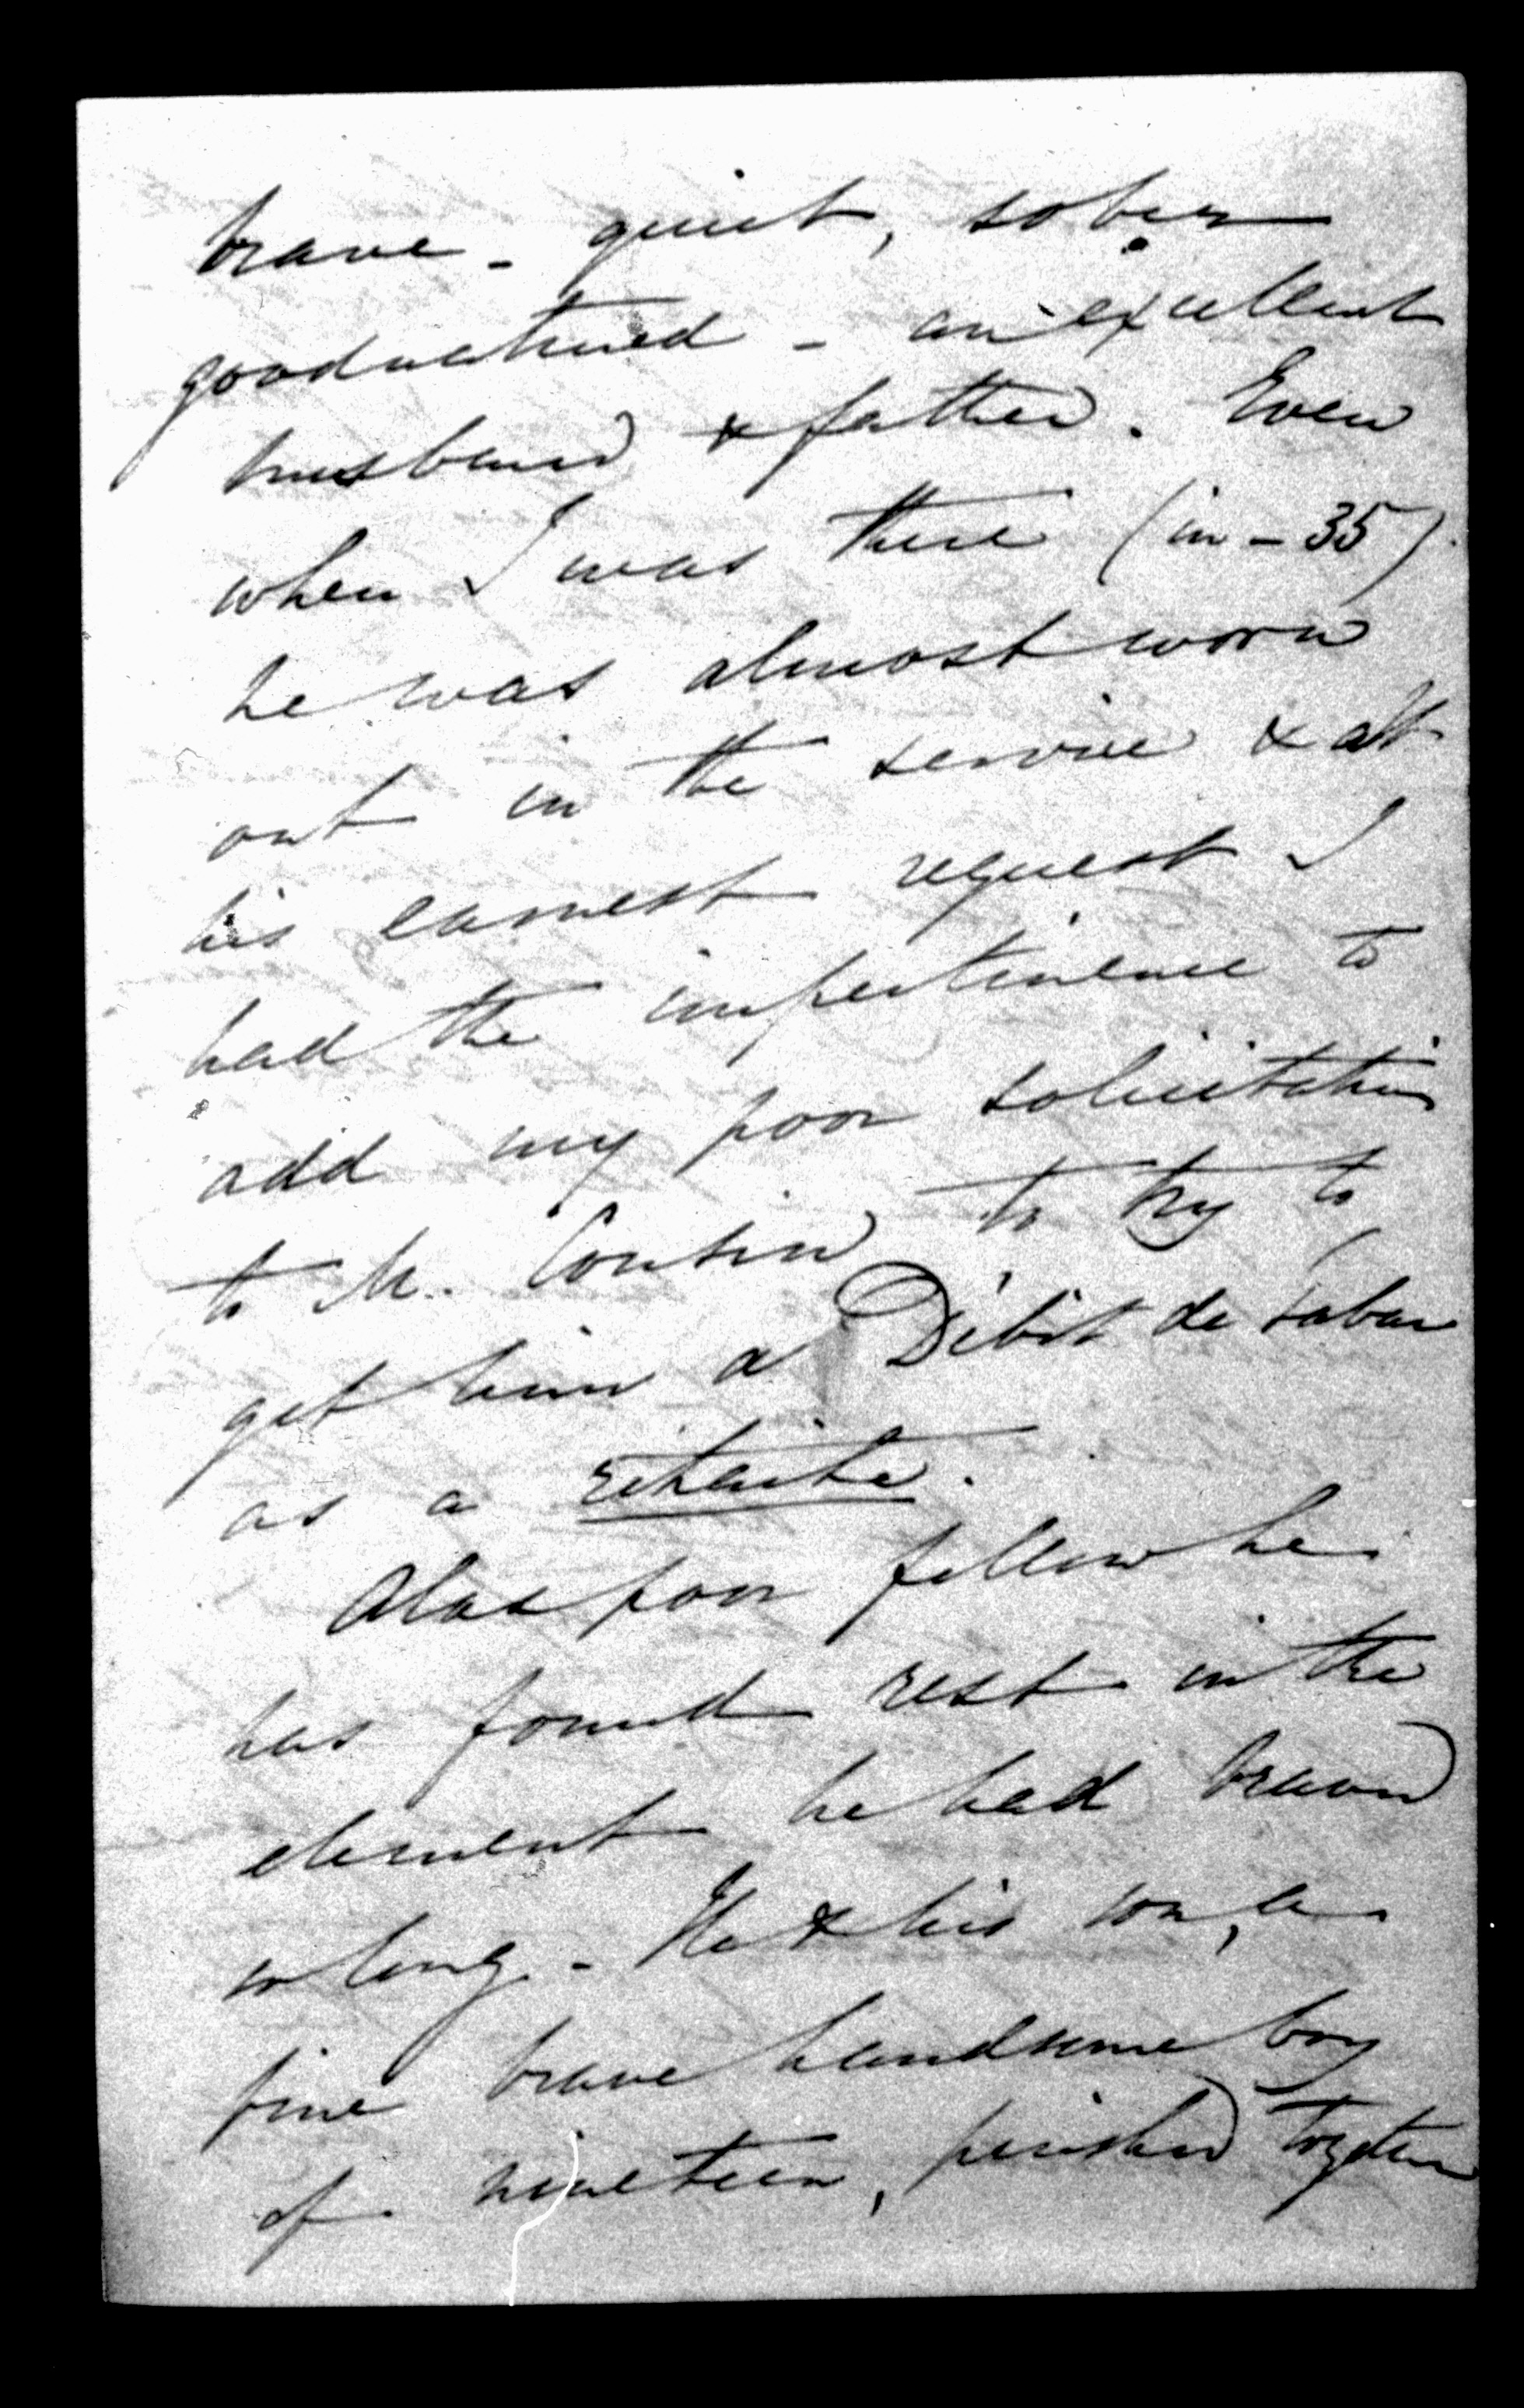 brave - quiet, sober
goodnatured - an excellent
husband & father. Even
when I was there (in - 35)
he was almost worn
out in the service & at
his earnest request I
had the impertinence to
add my poor solicitations
to M. Cousin to try to
get him a Débit de tabac
as a retraite.
Alas poor fellow he
has found rest in the
element he had braved
so long. - He & his son, a
fine brave handsome boy
of nineteen, perished together